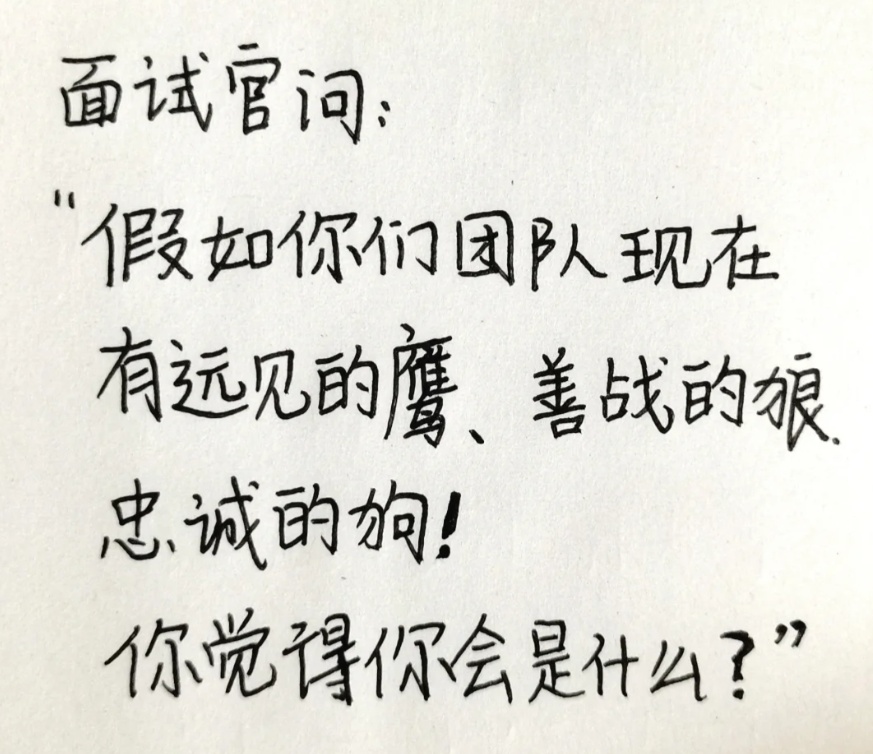 面试官问:
"假如你们团队现在
有远见的鹰、善战的狼、
忠诚的狗!
你觉得你会是什么?"